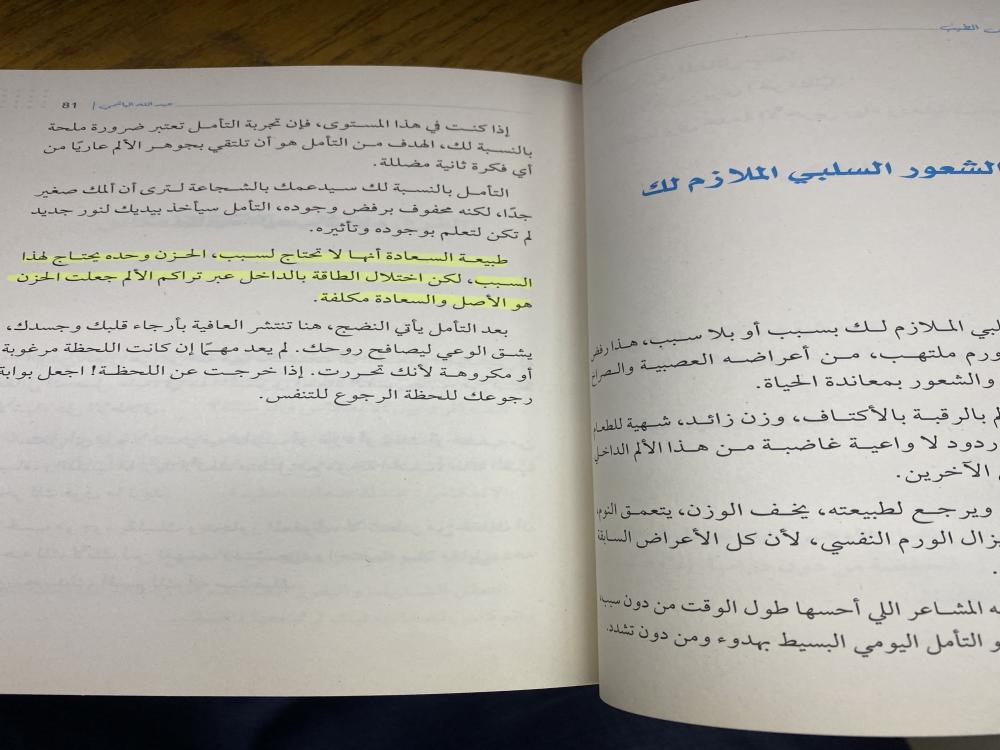 الطبيب
الشعور السلبي الملازم لك
الملازم لك بسبب أو بلا سبب، هذا رفض
ورم ملتهب، من أعراضه العصبية والصراخ
والشعور بمعاندة الحياة.
بالرقبة بالأكتاف، وزن زائد، شهية للطعام
ردود لا واعية غاضبة من هذا الألم الداخلي
الآخرين.
ويرجع لطبيعته، يخف الوزن، يتعمق النوم،
يزال الورم النفسي، لأن كل الأعراض السابقة
المشاعر اللي أحسها طول الوقت من دون سبب،
التأمل اليومي البسيط بهدوء ومن دون تشدد.
81 | عبد الله
إذا كنت في هذا المستوى، فإن تجربة التأمل تعتبر ضرورة ملحة
بالنسبة لك، الهدف من التأمل هو أن تلتقي بجوهر الألم عاريًا من
أي فكرة ثانية مضللة.
التأمل بالنسبة لك سيدعمك بالشجاعة لترى أن ألمك صغير
جدًا، لكنه محفوف برفض وجوده، التأمل سيأخذ بيديك لنور جديد
لم تكن لتعلم بوجوده وتأثيره.
طبيعة السعادة أنها لا تحتاج لسبب، الحزن وحده يحتاج لهذا
السبب، لكن اختلال الطاقة بالداخل عبر تراكم الألم جعلت الحزن
هو الأصل والسعادة مكلفة.
بعد التأمل يأتي النضج، هنا تنتشر العافية بأرجاء قلبك وجسدك،
يشق الوعي ليصافح روحك. لم يعد مهمًا إن كانت اللحظة مرغوبة
أو مكروهة لأنك تحررت. إذا خرجت عن اللحظة! اجعل بوابة
رجوعك للحظة الرجوع للتنفس.